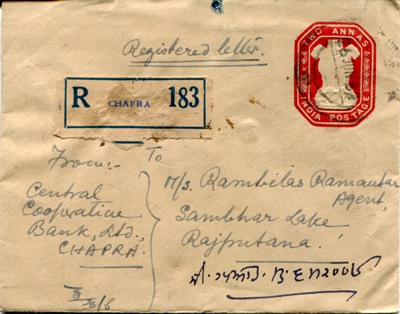 Registered letter.
TWO ANNAS
INDIA POSTAGE
R CHAPRA 183
From:-
Central
Cooperative
Bank, Ltd.,
CHAPRA.
To
M/s. Rambilas Ramautar
Agent,
Sambhar Lake
Rajputana.